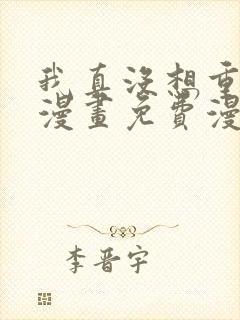 我真没想重
漫畫免費漫
李晋宇